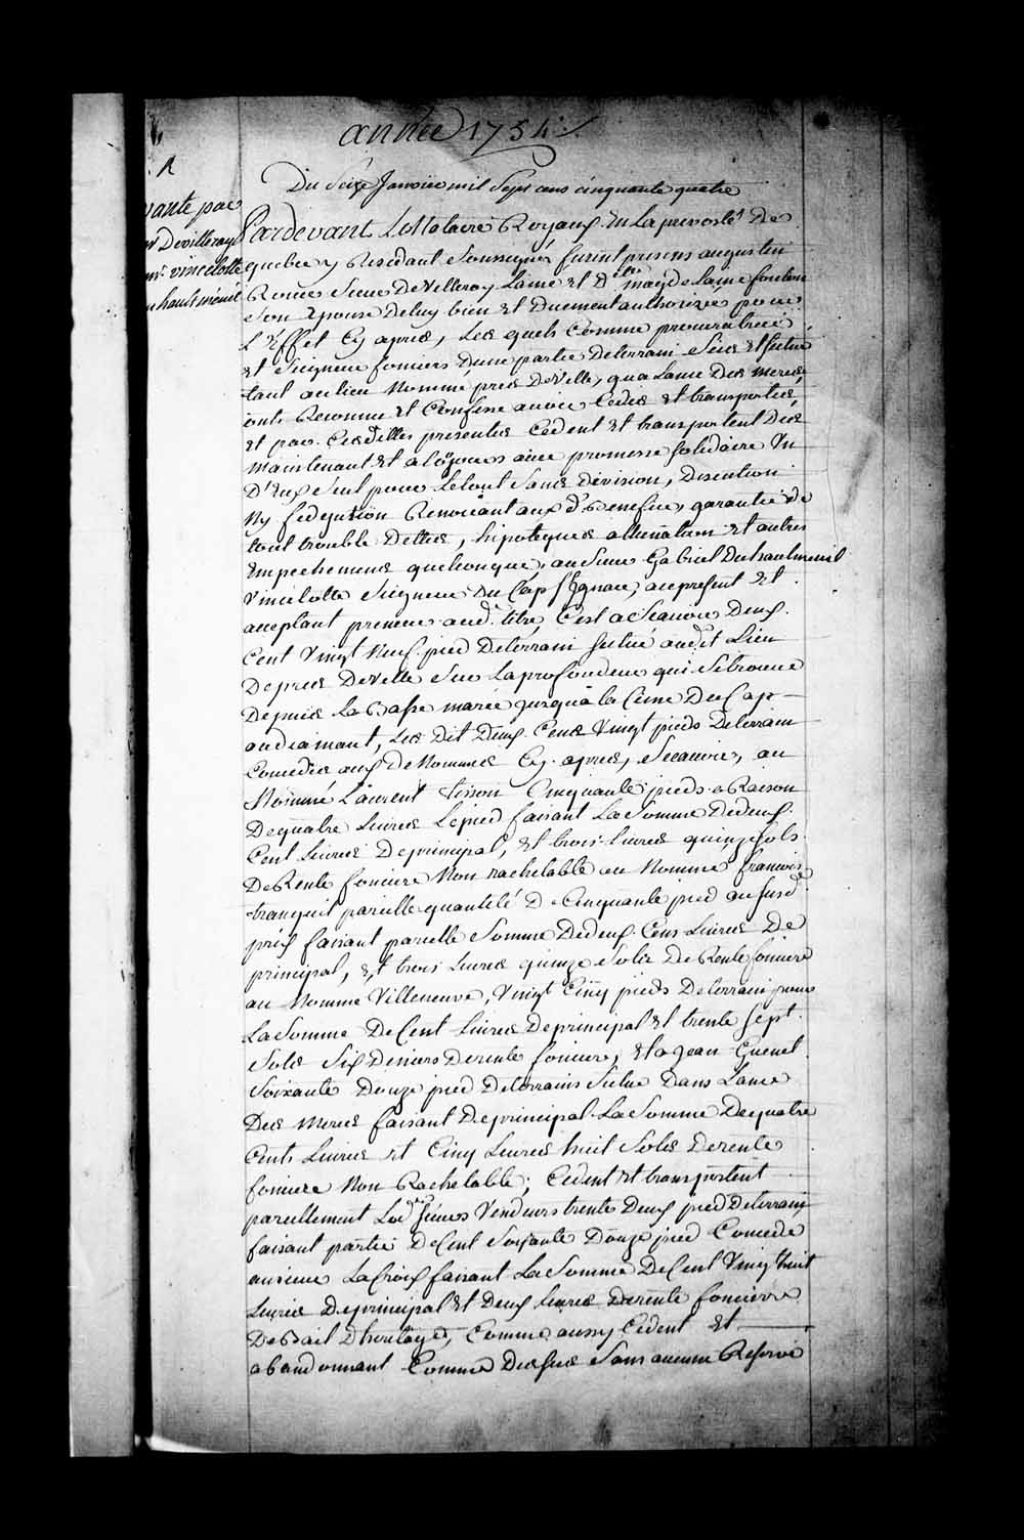 année 1754
Du Seize Janvier mil Sept cens cinquante quatre
vante par
Sr Devilleray
mr vincelotte
du hautmenil
Pardevant Le Notaire Royaux En La prevosté De
quebecq Residant Soussigné furent presens augustin
Roüer Sieur DeVilleray Lainé Et D.lle Lainé fontaine
Son Epouse Deluy bien Et Duement authorizée pour
L'Effet Cy apres, Les quels Comme
Et Seigneur fonciers Dune partie Deterrain Size Et Située
tant au lieu Nommé pres DeVille, qua Lance Des meres,
onts Reconnu Et Confessé avoir Cedés Et transportés,
Et par Cesdittes presentes Cedent Et transportent Des
Maintenant Et a toujours avec promesse solidaire Un
D'Eux Seul pour Letout Sans Division, Discution
Ny fidejusion Renonceant aux d.s Benefices garantir de
tout trouble Dettes, hipoteques allienation Et autres
Empechemens quelconque, au Sieur Gabriel Duhautmenil
Vincelotte Seigneur Du Cap St Ignace, acepresent Et
acceptant preneur aud. titre, C'est a Scavoir Deux
Cent Vingt Neuf pied Deterrain Scitué audit Lieu
Depres DeVille Sur La profondeur qui Setrouve
Depuis La Basse marée jusqua la Cime Du Cap
audiamant, Les Dit Deux Cens Vingt pieds Deterrain
Concedés aux DeNommés Cy apres, Scavoir, au
Nommé Laurent Cinquante pieds a Raison
Dequatre Livres Lepied faisant La Somme Dedeux
Cent Livres Deprincipal, Et trois livres quinze sols
DeRente fonciere Non rachetable au Nommé francois
tranquil pareille quantité De Cinquante pied au susd.
prix faisant pareille Somme Dedeux Cens Livres De
principal, Et trois Livres quinze Sols De Rente fonciere
au Nommé Villeneuve, Vingt Cinq pieds Deterrain pour
La Somme DeCent Livres Deprincipal Et trente Sept
Sols Six Deniers Derente fonciere, Et a Jean Guenet
Soixante Douze pied Deterrains Situé Dans Lance
Des Meres faisant Deprincipal La Somme Dequatre
Cents Livres Et Cinq Livres huit Sols Derente
fonciere Non Rachetable; Cedent Et transportent
pareillement Lesd. Sieurs Vendeurs trente Deux pied Deterrain
faisant partie DeCent Soixante Douze pied Concedé
ausieur LaCroix faisant La Somme DeCent Vingt huit
Livres Deprincipal Et Deux livres Derente fonciere
De Bail D'heritage, Comme aussy Cedent Et
abandonnent Comme Dessus Sans aucune Reserve